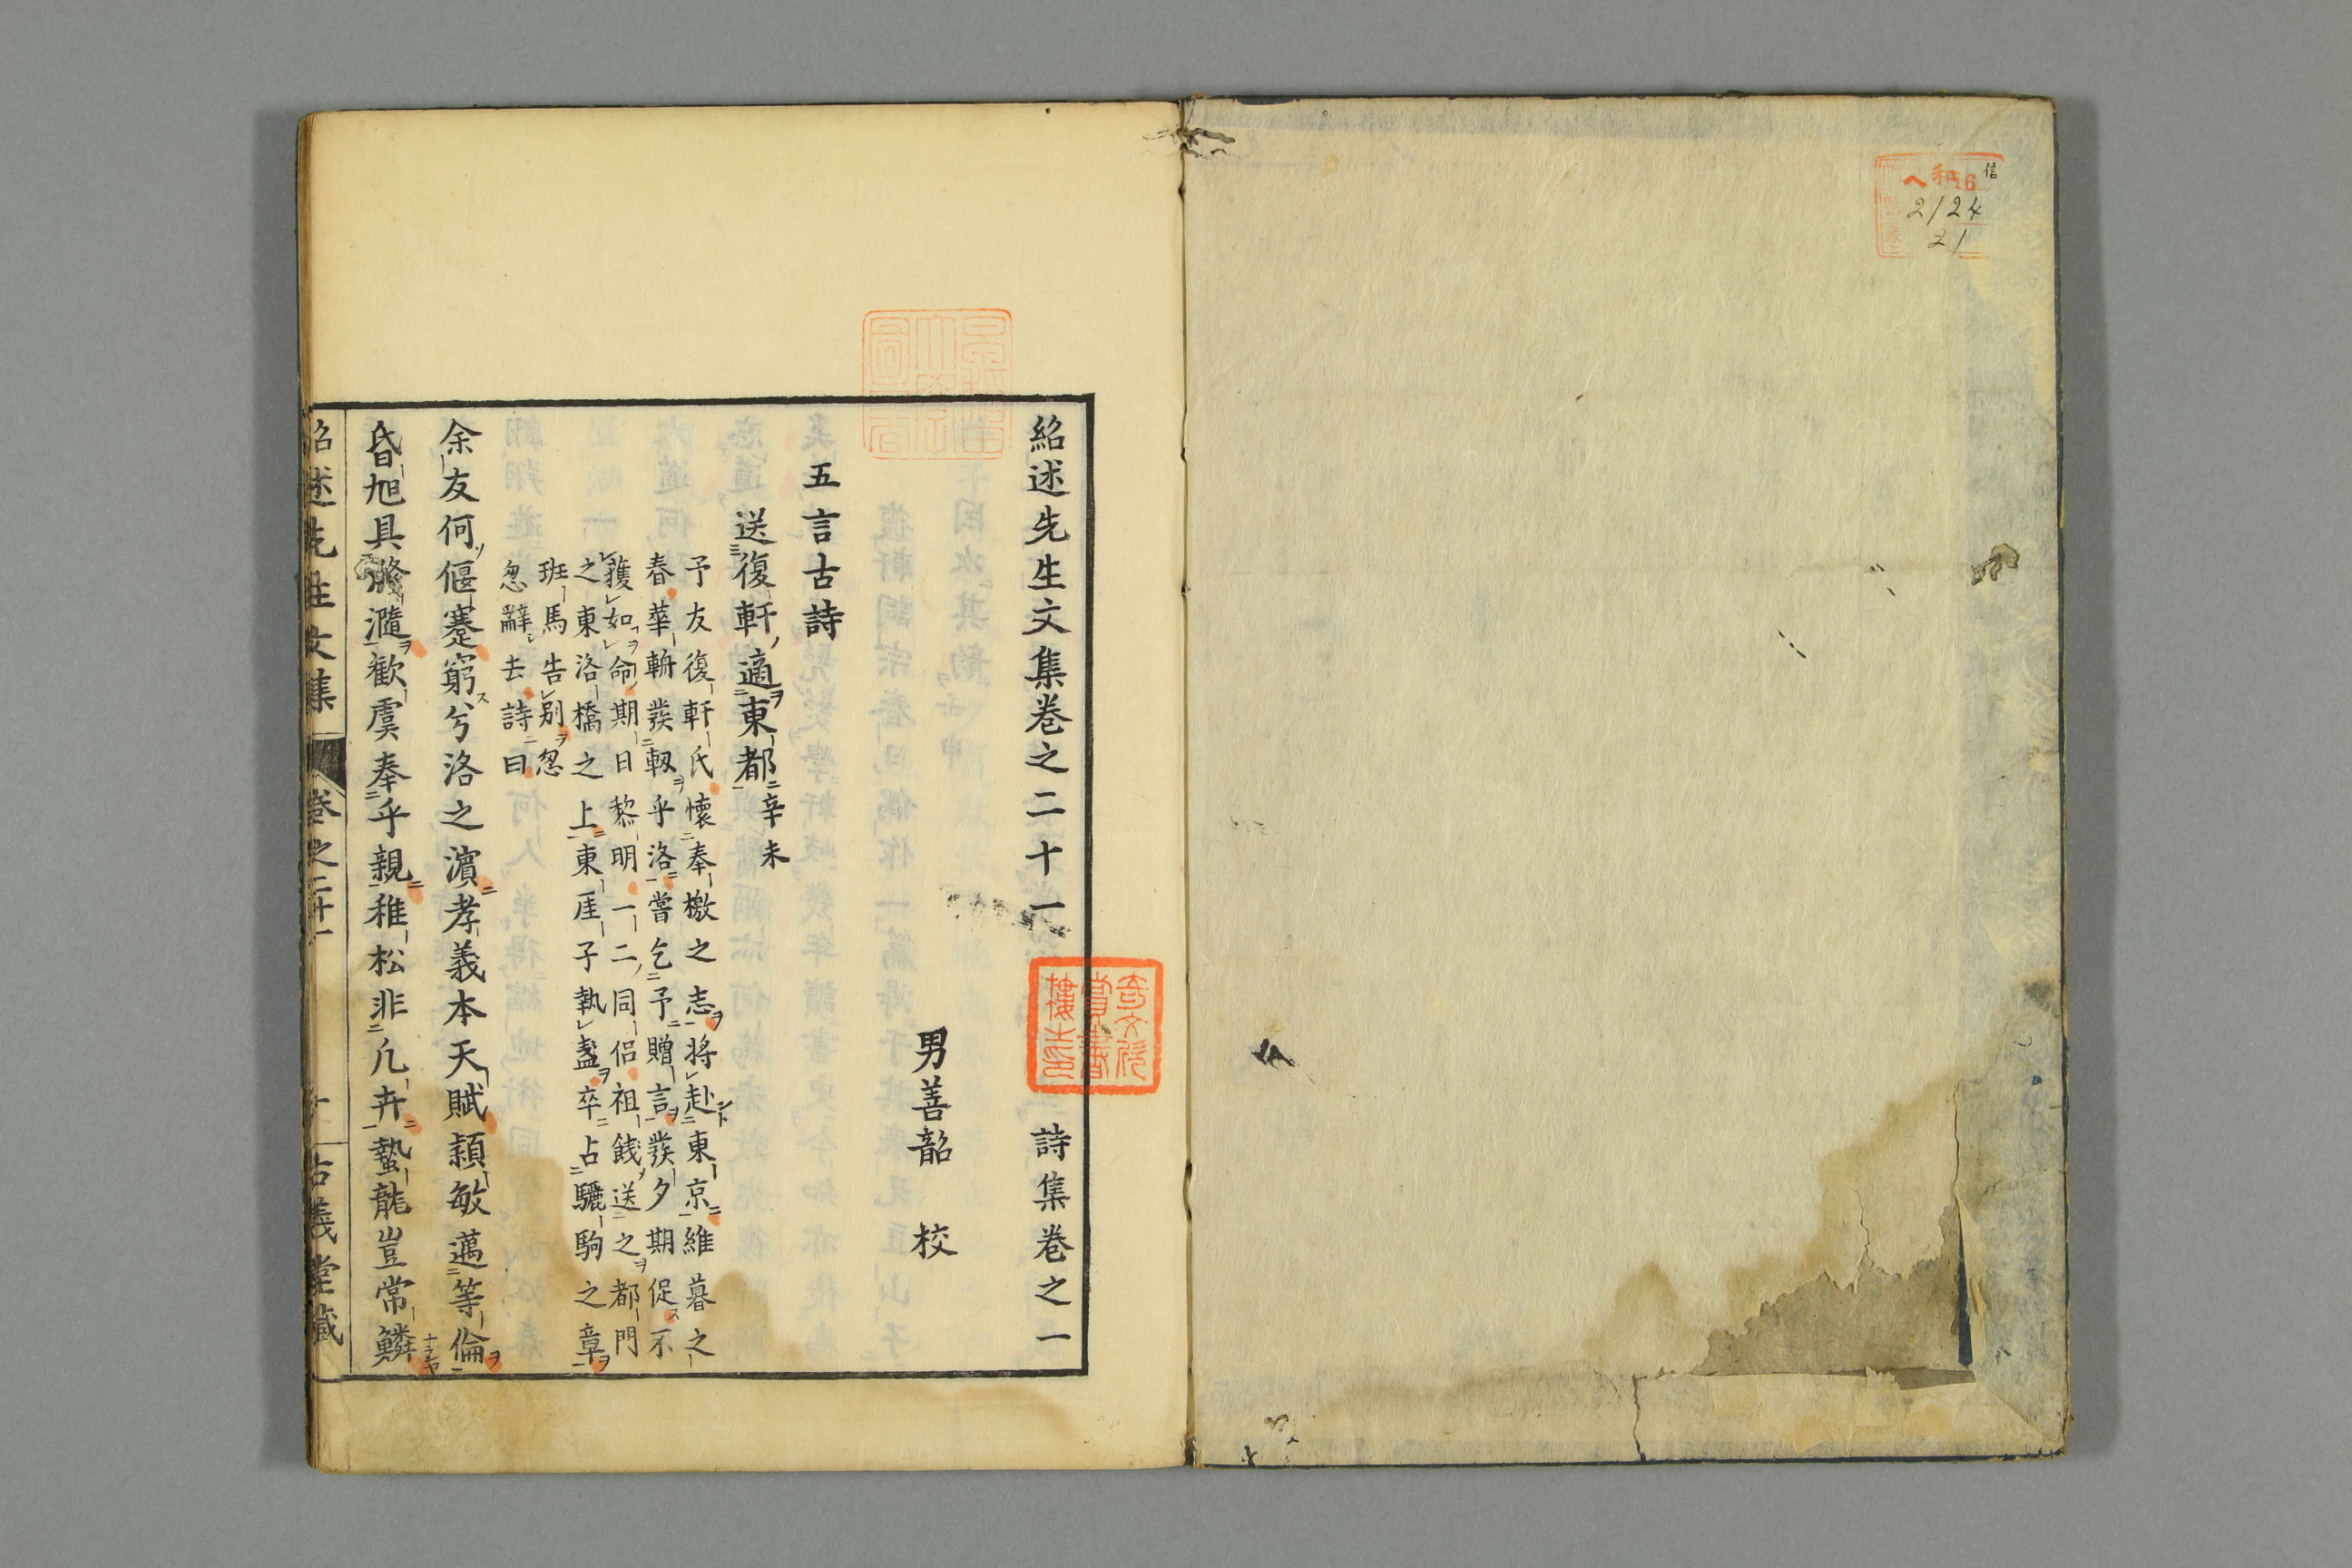 和16
ヘ
信
2124
21
紹述先生文集卷之二十一 詩集卷之一
男善韶 校
五言古詩
送復軒適東都 辛未
予友復軒氏懷奉檄之志將赴東京維暮之
春華輈發軔乎洛嘗乞予贈言發夕期促不
獲如命期日黎明一二同侶祖餞送之都門
之東洛橋之上東厓子執盞卒占驪駒之章
班馬告別忽
忽辭去詩曰
余友何偃蹇窮兮洛之濵孝義本天賦頴敏邁等倫
昏旭具滫瀡歡虞奉乎親稚松非凡卉蟄龍豈常鱗
紹述先生文集 卷之二十一 古義堂藏